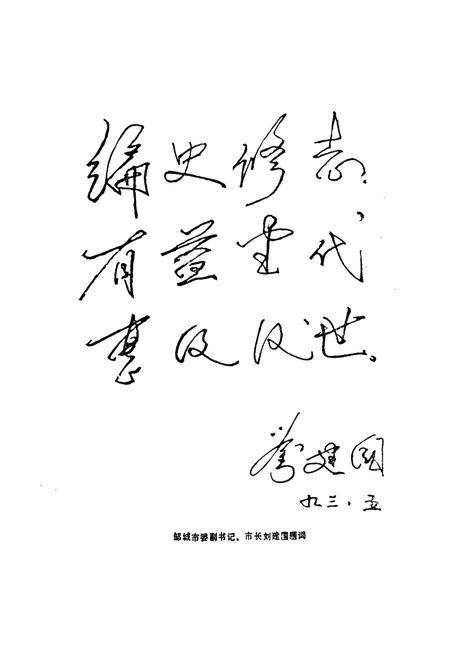 编史修志，
有益当代
惠及后世。
刘建国
九三·五
邹城市委副书记、市长刘建国题词